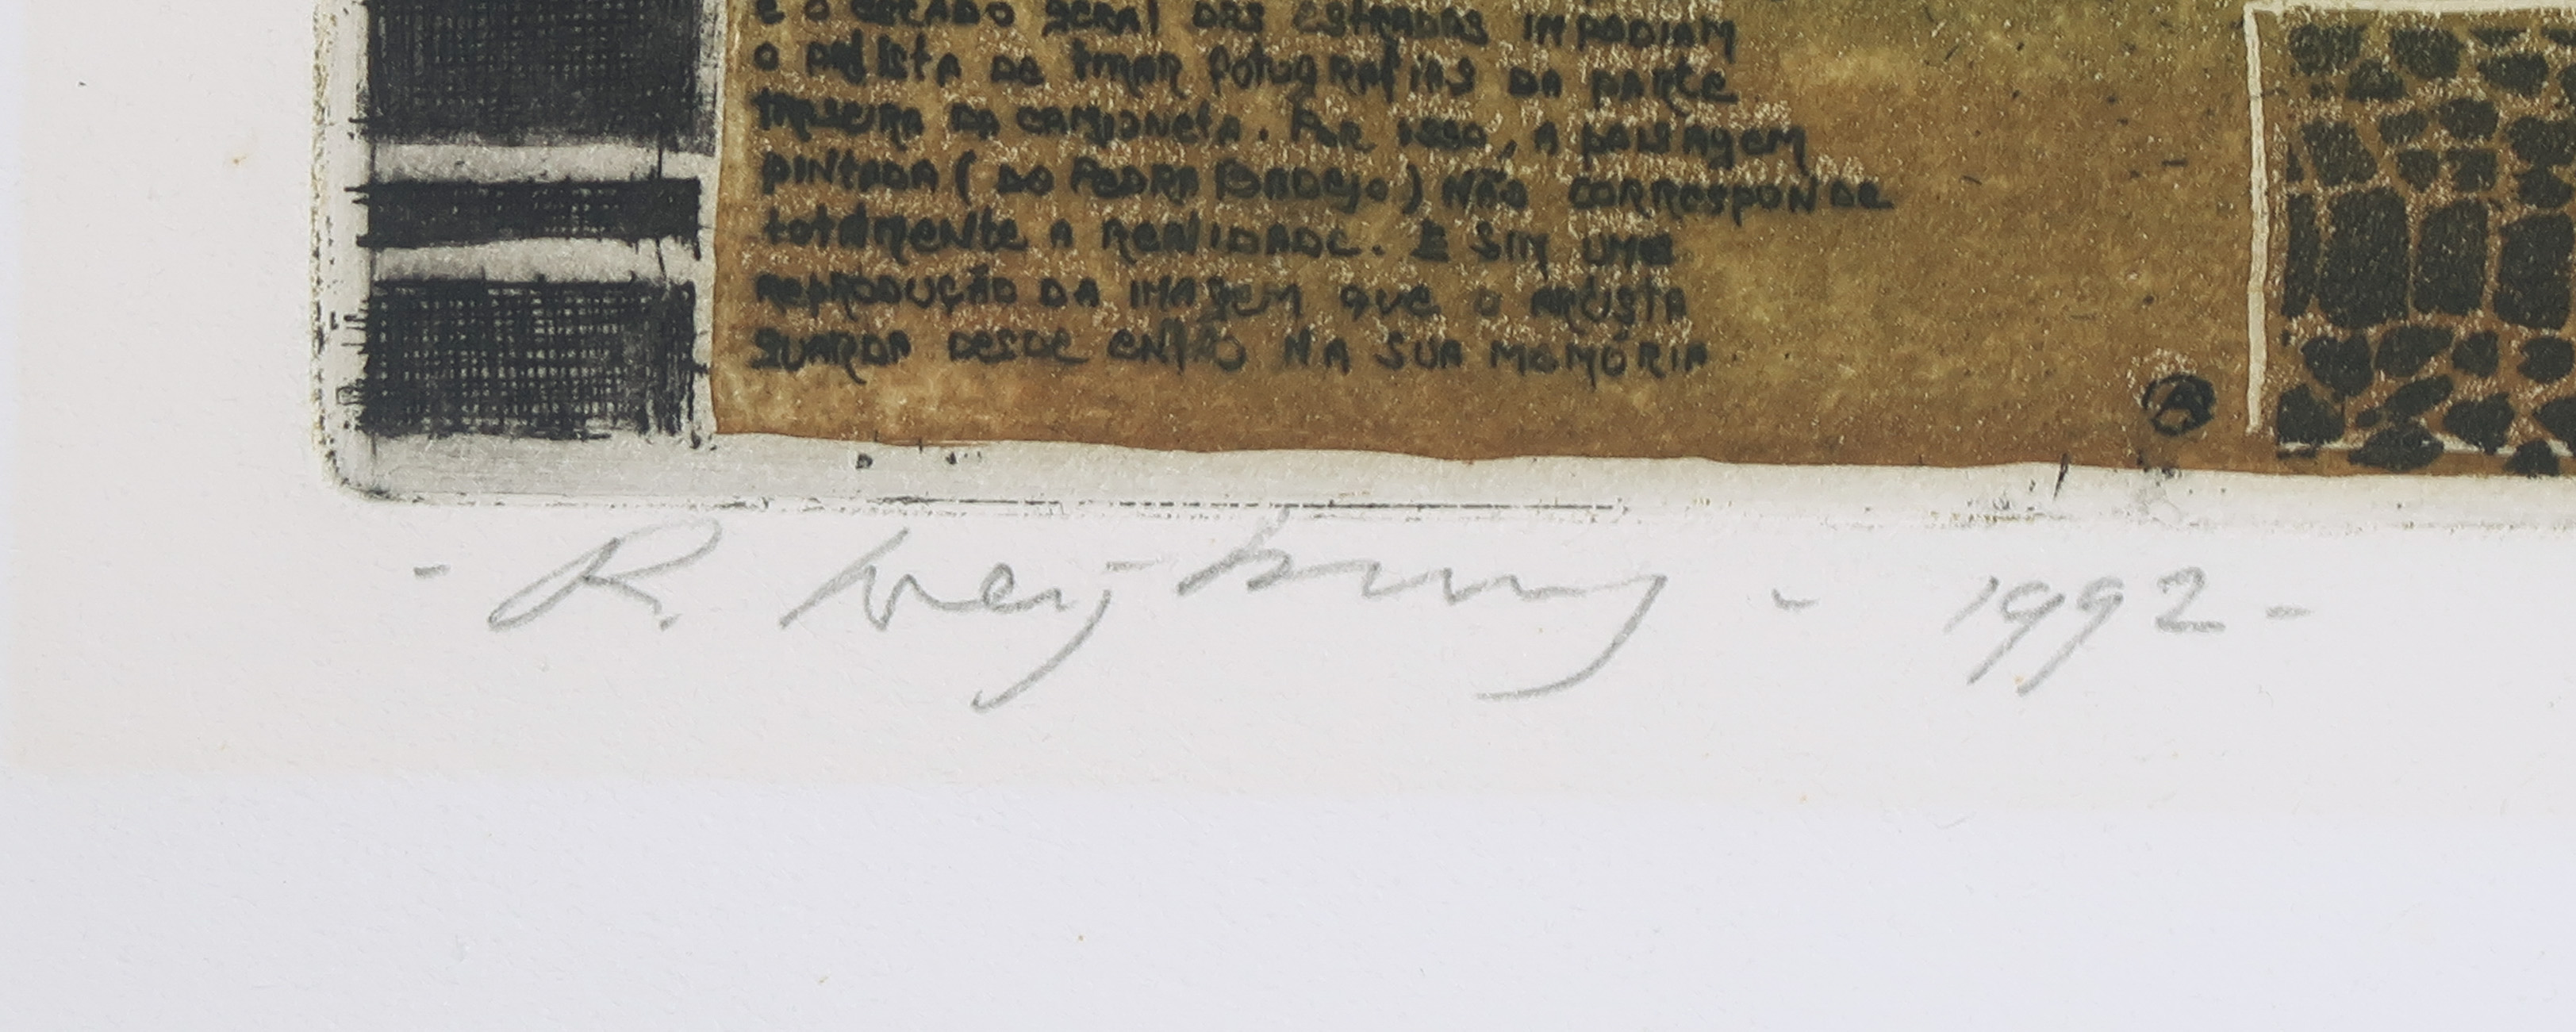 e o estado geral das estradas impediam
o artista de tirar fotografias da parte
traseira da camioneta. Por isso, a paisagem
pintada (do Pedra Badejo) não corresponde
totalmente a realidade. E sim uma
reprodução da imagem que o artista
guarda desde então na sua memória
A
- R. - 1992 -